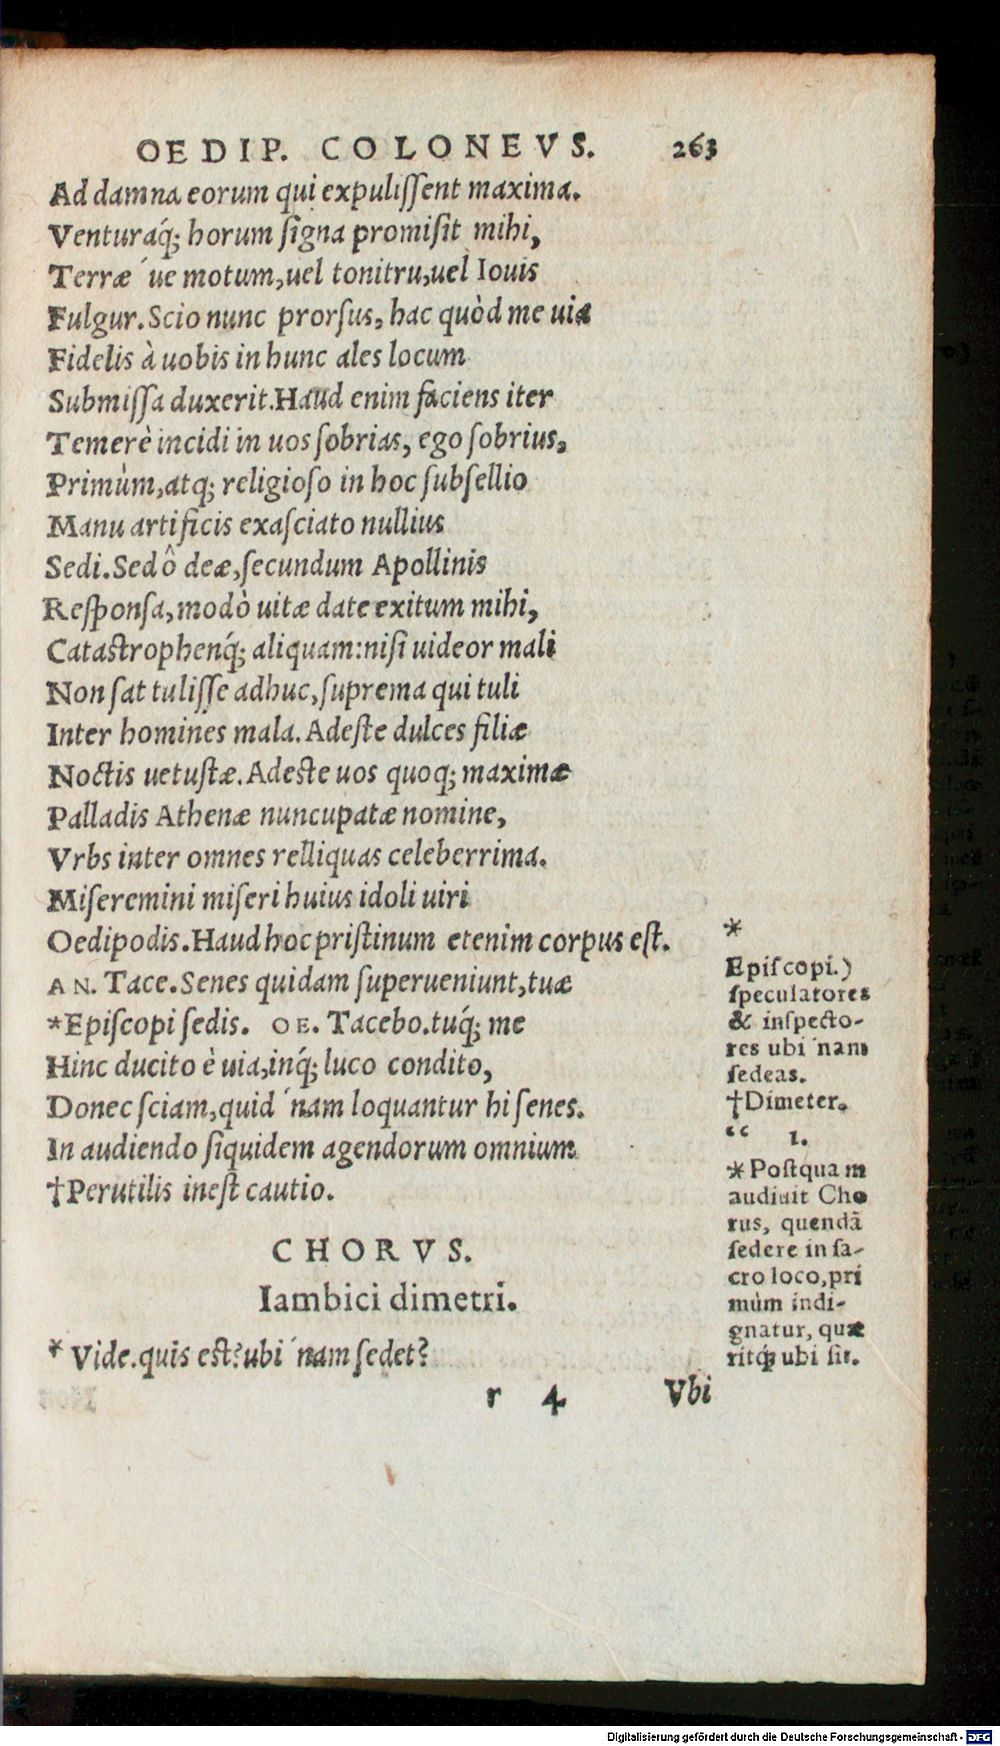 OEDIP. COLONEVS. 263
Ad damna eorum qui expulissent maxima.
Venturáq́; horum signa promisit mihi,
Terræ ´ue motum, uel tonitru, uel Iouis
Fulgur. Scio nunc prorsus, hac quòd me uia
Fidelis à uobis in hunc ales locum
Submissa duxerit. Haud enim faciens iter
Temerè incidi in uos sobrias, ego sobrius,
Primùm, atq; religioso in hoc subsellio
Manu artificis exasciato nullius
Sedi. Sed ô deæ, secundum Apollinis
Responsa, modò uitæ date exitum mihi,
Catastrophenq́; aliquam: nisi uideor mali
Non sat tulisse adhuc, suprema qui tuli
Inter homines mala. Adeste dulces filiæ
Noctis uetustæ. Adeste uos quoq; maximæ
Palladis Athenæ nuncupatæ nomine,
Vrbs inter omnes relliquas celeberrima.
Miseremini miseri huius idoli uiri
Oedipodis. Haud hoc pristinum etenim corpus est.
AN. Tace. Senes quidam superueniunt, tuæ
*Episcopi sedis. OE. Tacebo. tuq́; me
Hinc ducito è uia, inq́; luco condito,
Donec sciam, quid ´nam loquantur hi senes.
In audiendo siquidem agendorum omnium
†Perutilis inest cautio.
CHORVS.
Iambici dimetri.
* Vide. quis est? ubi ´nam sedet?
r 4 Vbi
*
Episcopi.)
speculatores
& inspecto-
res ubi ´nam
sedeas.
†Dimeter.
“ 1.
*Postquam
audiuit Cho
rus, quendã
sedere in sa-
cro loco, pri
mùm indi-
gnatur, quæ
ritq́; ubi sit.
Digitalisierung gefördert durch die Deutsche Forschungsgemeinschaft - DFG